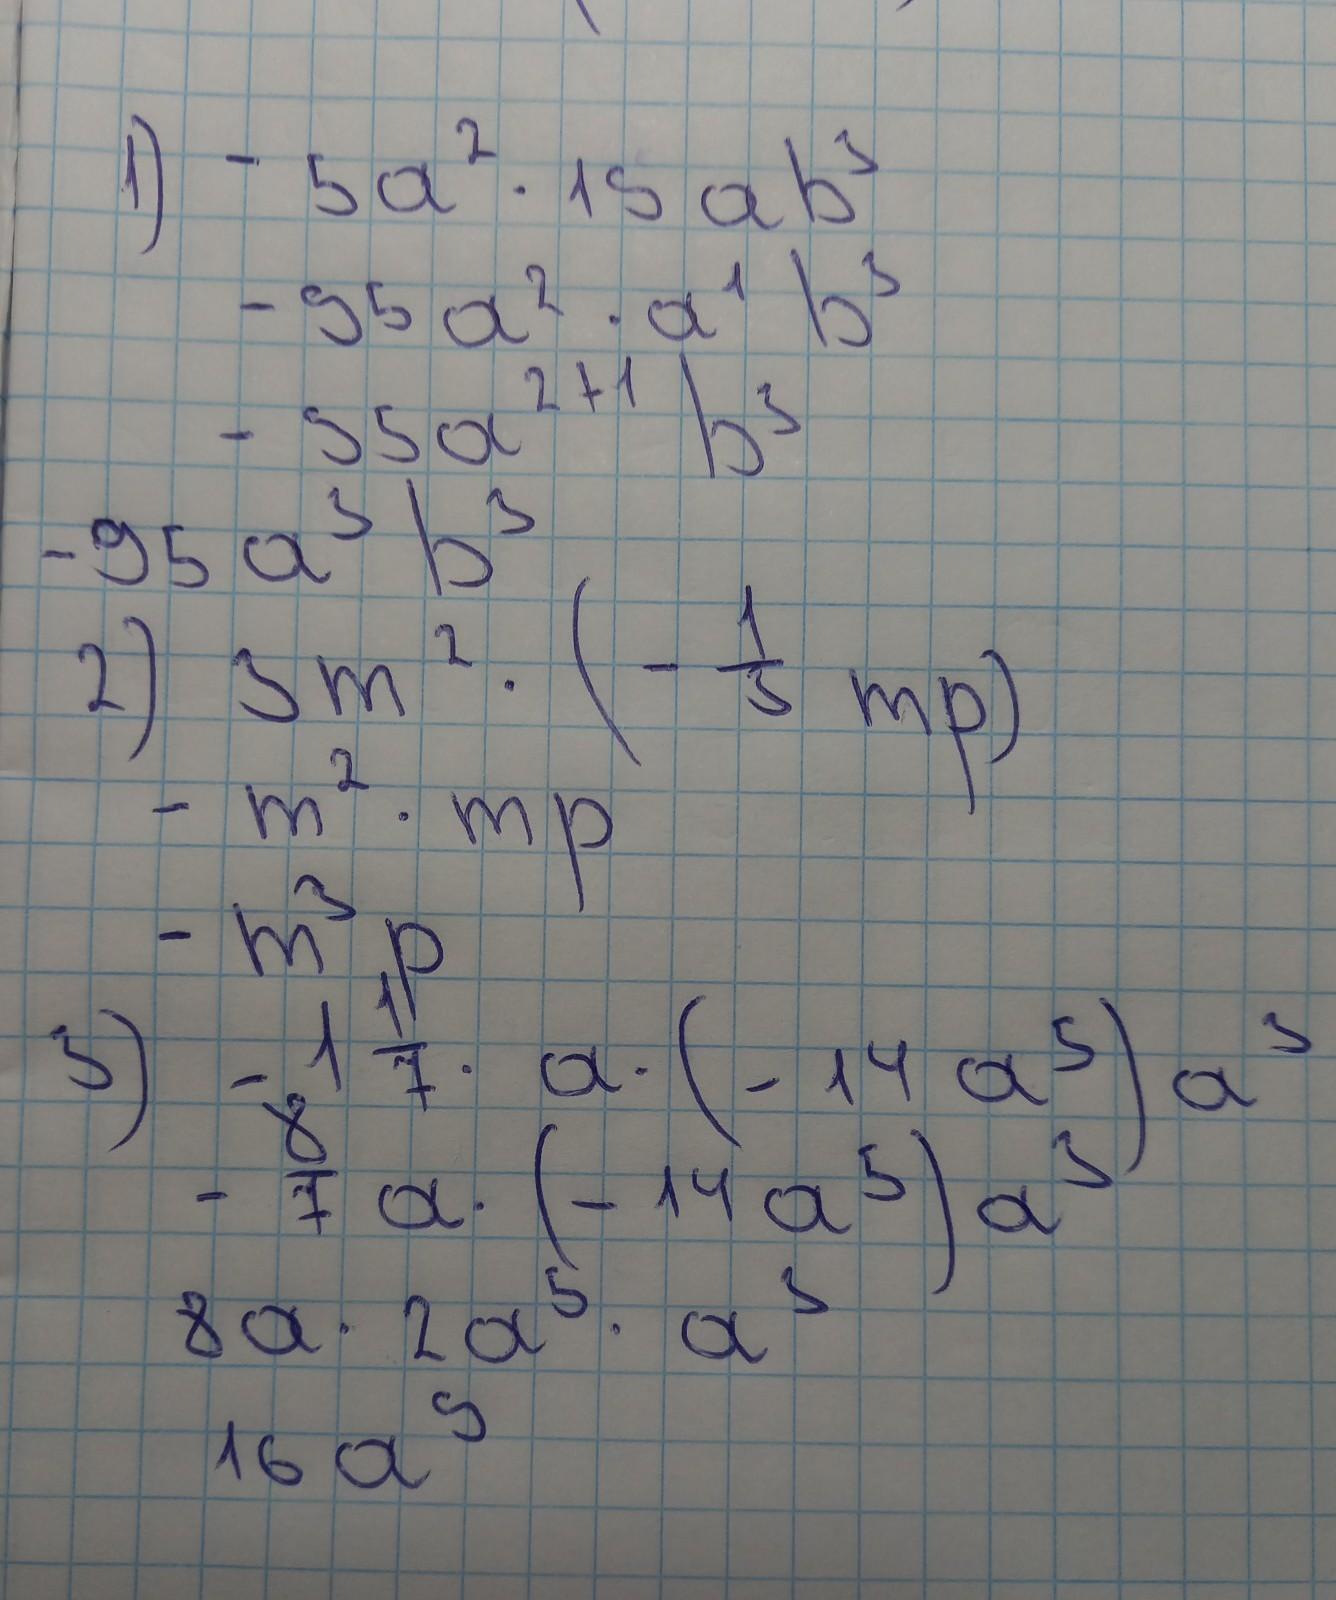 1) - 5a² · 19ab³
- 95a² · a¹ b³
- 95a²⁺¹ b³
-95a³b³
2) 3m² · (- 1/3 mp)
- m² · mp
- m³p
3) - 1 1/7 · a · (- 14a⁵) a³
- 8/7 a · (- 14a⁵) a³
8a · 2a⁵ · a³
16a⁹